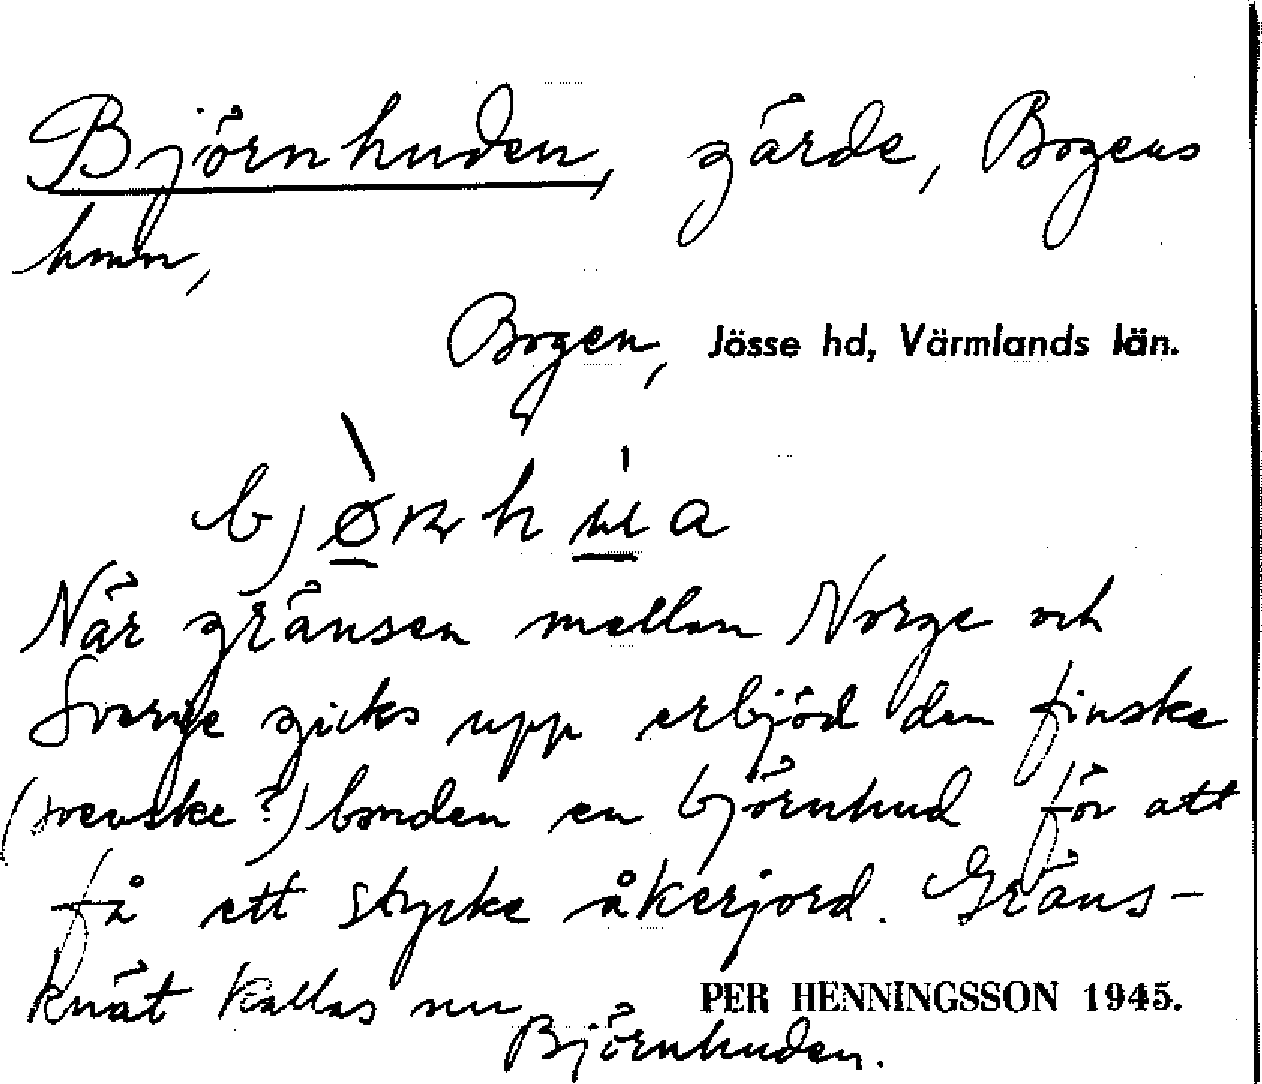 Björnhuden, gärde, Bogens
hmn,
Bogen, Jösse hd, Värmlands län.
När gränsen mellan Norge och
Sverge gicks upp erbjöd den finske
(svenske?) bonden en björnhud för att
få ett stycke åkerjord. Gräns-
knät kallas nu
PER HENNINGSSON 1945.
Björnhuden.